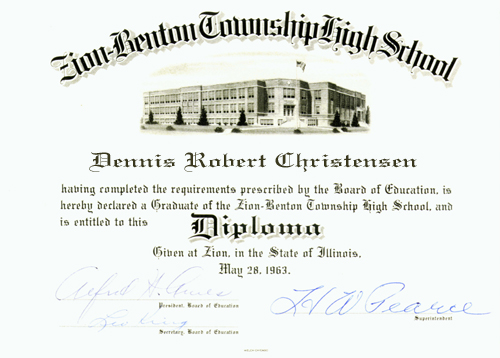 Zion-Benton Township High School
Dennis Robert Christensen
having completed the requirements prescribed by the Board of Education, is
hereby declared a Graduate of the Zion-Benton Township High School, and
is entitled to this Diploma
Given at Zion, in the State of Illinois,
May 28, 1963.
President, Board of Education
H W Pearce
Superintendent
Secretary, Board of Education